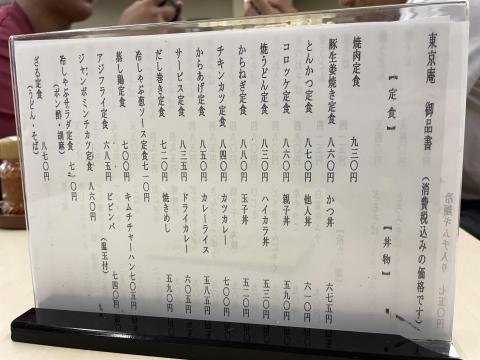 冷麺キムチ入り 七五〇円
東京庵 御品書 (消費税込みの価格です)
『定食』 『丼物』
焼肉定食 九二〇円
豚生姜焼き定食 八六〇円 かつ丼 六七五円
とんかつ定食 八七〇円 他人丼 六一〇円
コロッケ定食 八六〇円 親子丼 五九〇円
焼うどん定食 八三〇円 ハイカラ丼 五三〇円
からねぎ定食 八八〇円 玉子丼 五二〇円
チキンカツ定食 八四〇円 カツカレー 七〇〇円
からあげ定食 八五〇円 カレーライス 五八五円
サービス定食 八三五円 ドライカレー 六〇五円
だし巻き定食 七二〇円 焼きめし 五九〇円
冷しゃぶ葱ソース定食 七一〇円
蒸し鶏定食 七〇〇円 キムチチャーハン 七〇五円
アジフライ定食 六八五円 ビビンバ 七四〇円
ジャンボミンチカツ定食 八六〇円 (温玉付)
冷しゃぶサラダ定食 七一〇円
(ポン酢・胡麻)
ざる定食 八七〇円
(うどん・そば)